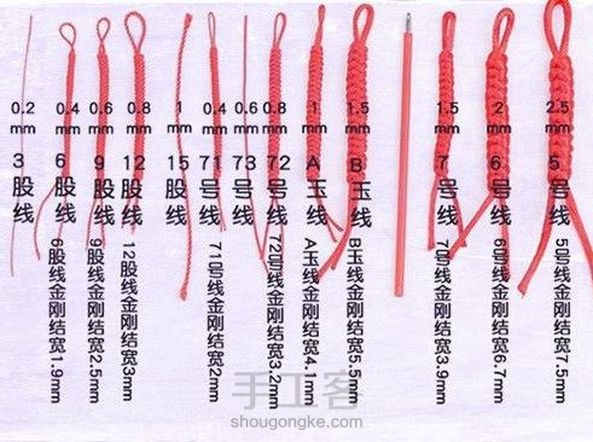 0.2 mm 3股线
0.4 mm 6股线 6股线金刚结宽1.9mm
0.6 mm 9股线 9股线金刚结宽2.5mm
0.8 mm 12股线 12股线金刚结宽3mm
1 mm 15股线
0.4 mm 71号线 71号线金刚结宽2mm
0.6 mm 73号线
0.8 mm 72号线 72号线金刚结宽3.2mm
1 mm A玉线 A玉线金刚结宽4.1mm
1.5 mm B玉线 B玉线金刚结宽5.5mm
1.5 mm 7号线 7号线金刚结宽3.9mm
2 mm 6号线 6号线金刚结宽6.7mm
2.5 mm 5号线 5号线金刚结宽7.5mm
手工客
shougongke.com